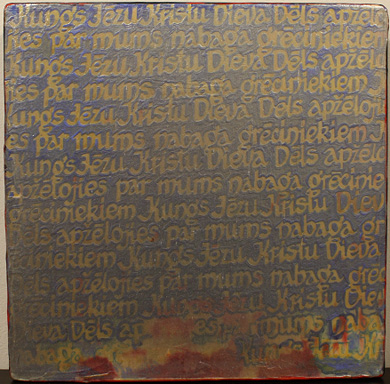 Kungs Jēzu Kristu Dieva Dēls apžēlo
jies par mums nabaga grēciniekiem
Kungs Jēzu Kristu Dieva Dēls apžēlo
jies par mums nabaga grēciniekiem
Kungs Jēzu Kristu Dieva Dēls apžēloj
ies par mums nabaga grēciniekiem
Kungs Jēzu Kristu Dieva Dēls apžēl
apžēlojies par mums nabaga grēcinie
grēciniekiem Kungs Jēzu Kristu Dieva
Dēls apžēlojies par mums nabaga gr
ēciniekiem Kungs Jēzu Kristu Dieva
Dēls apžēlojies par mums nabaga grē
grēciniekiem Kungs Jēzu Kristu Diev
Dieva Dēls ap ies par mums naba
nabaga